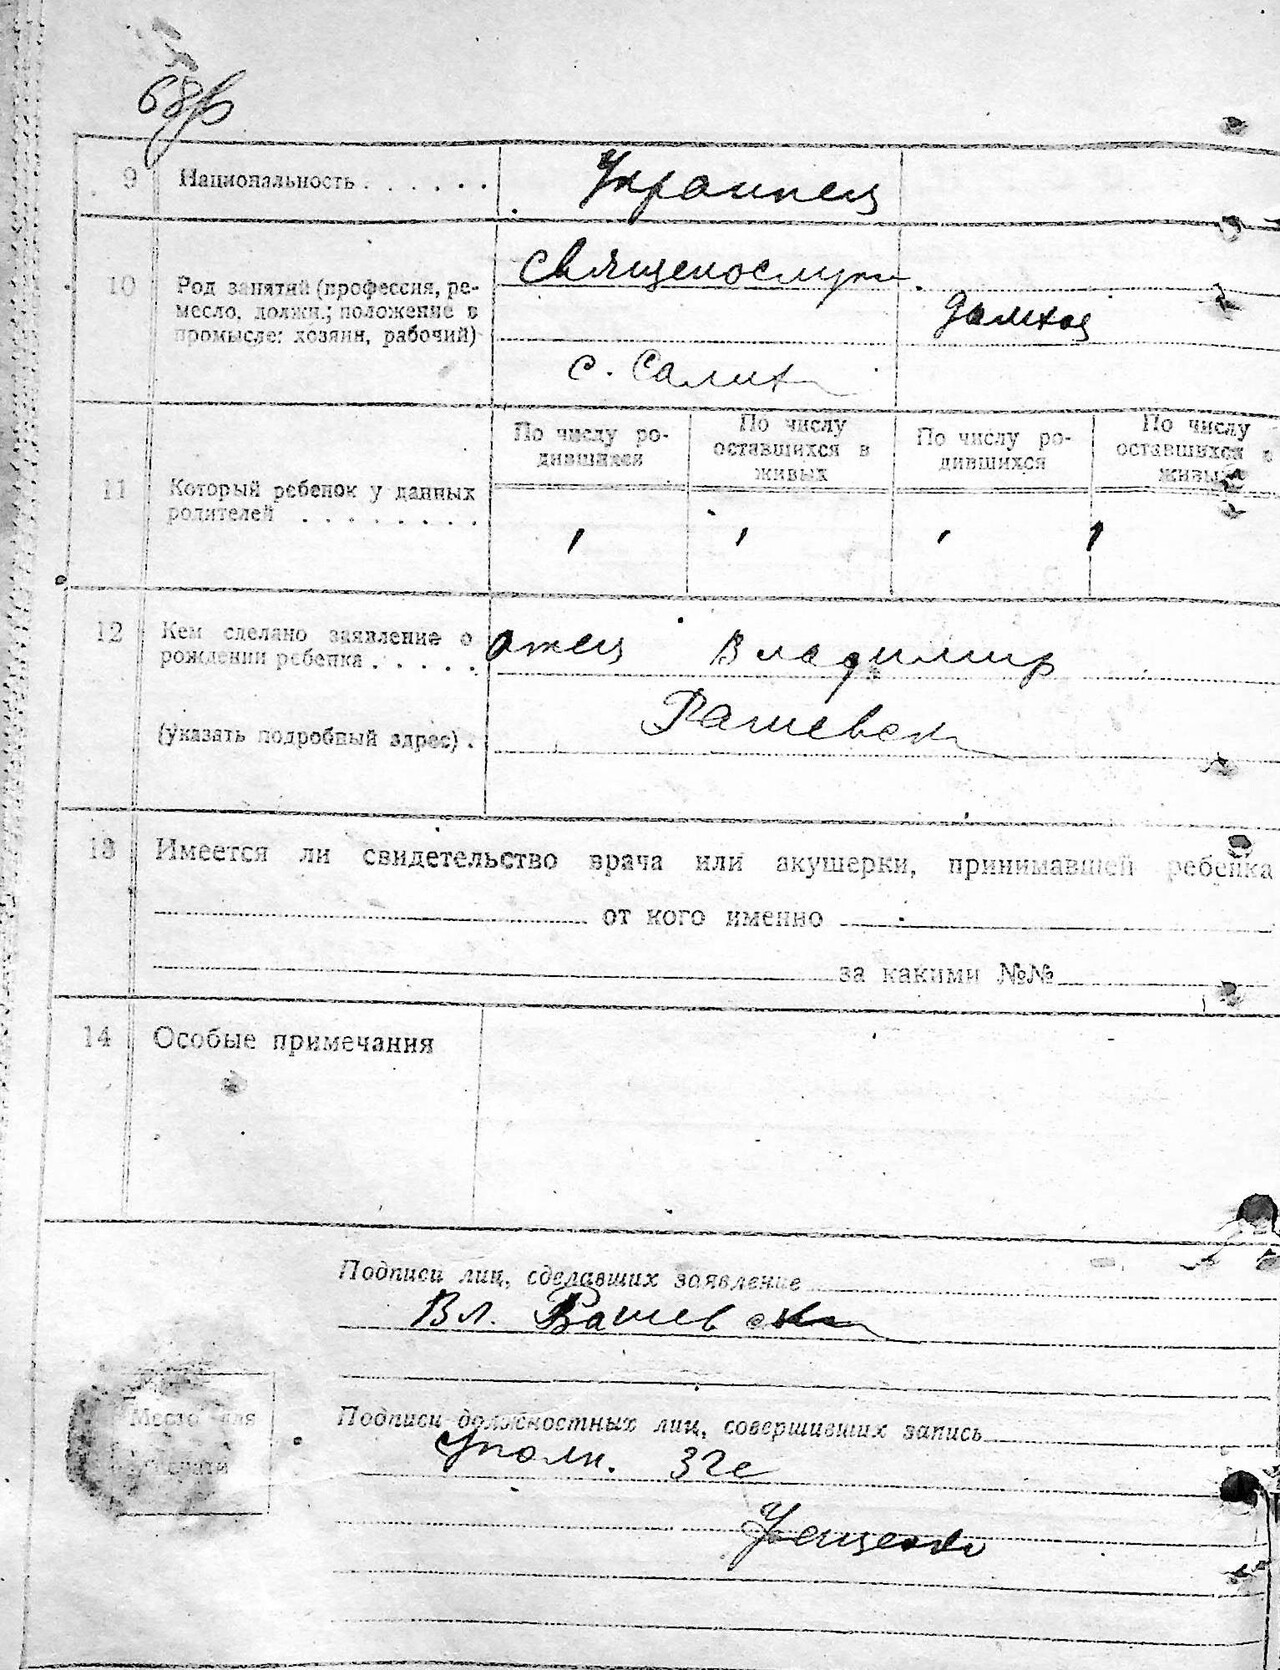 9 Национальность . . . . . . Украинец
10 Род занятий (профессия, ре-
месло, должн.; положение в
промысле: хозяин, рабочий)
Священослуж.
домхоз
с. Салих
11 Который ребенок у данных
родителей . . . . . . . .
По числу ро-
дившихся
По числу
оставшихся в
живых
По числу ро-
дившихся
По числу
оставшихся в
живых
1 1 1 1
12 Кем сделано заявление о
рождении ребенка . . . . .
(указать подробный адрес) .
отец Владимир
Рашевск
13 Имеется ли свидетельство врача или акушерки, принимавшей ребенка
от кого именно
за какими №№
14 Особые примечания
Подписи лиц, сделавших заявление
Вл. Рашевск
Место для
печати
Подписи должностных лиц, совершивших запись
Уполн.